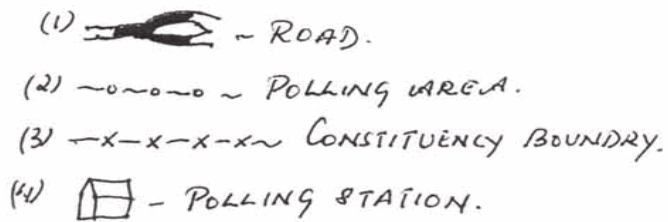 (1) ~ ROAD.
(2) ~o~o~o ~ POLLING AREA.
(3) -x-x-x-x~ CONSTITUENCY BOUNDRY.
(4) - POLLING STATION.